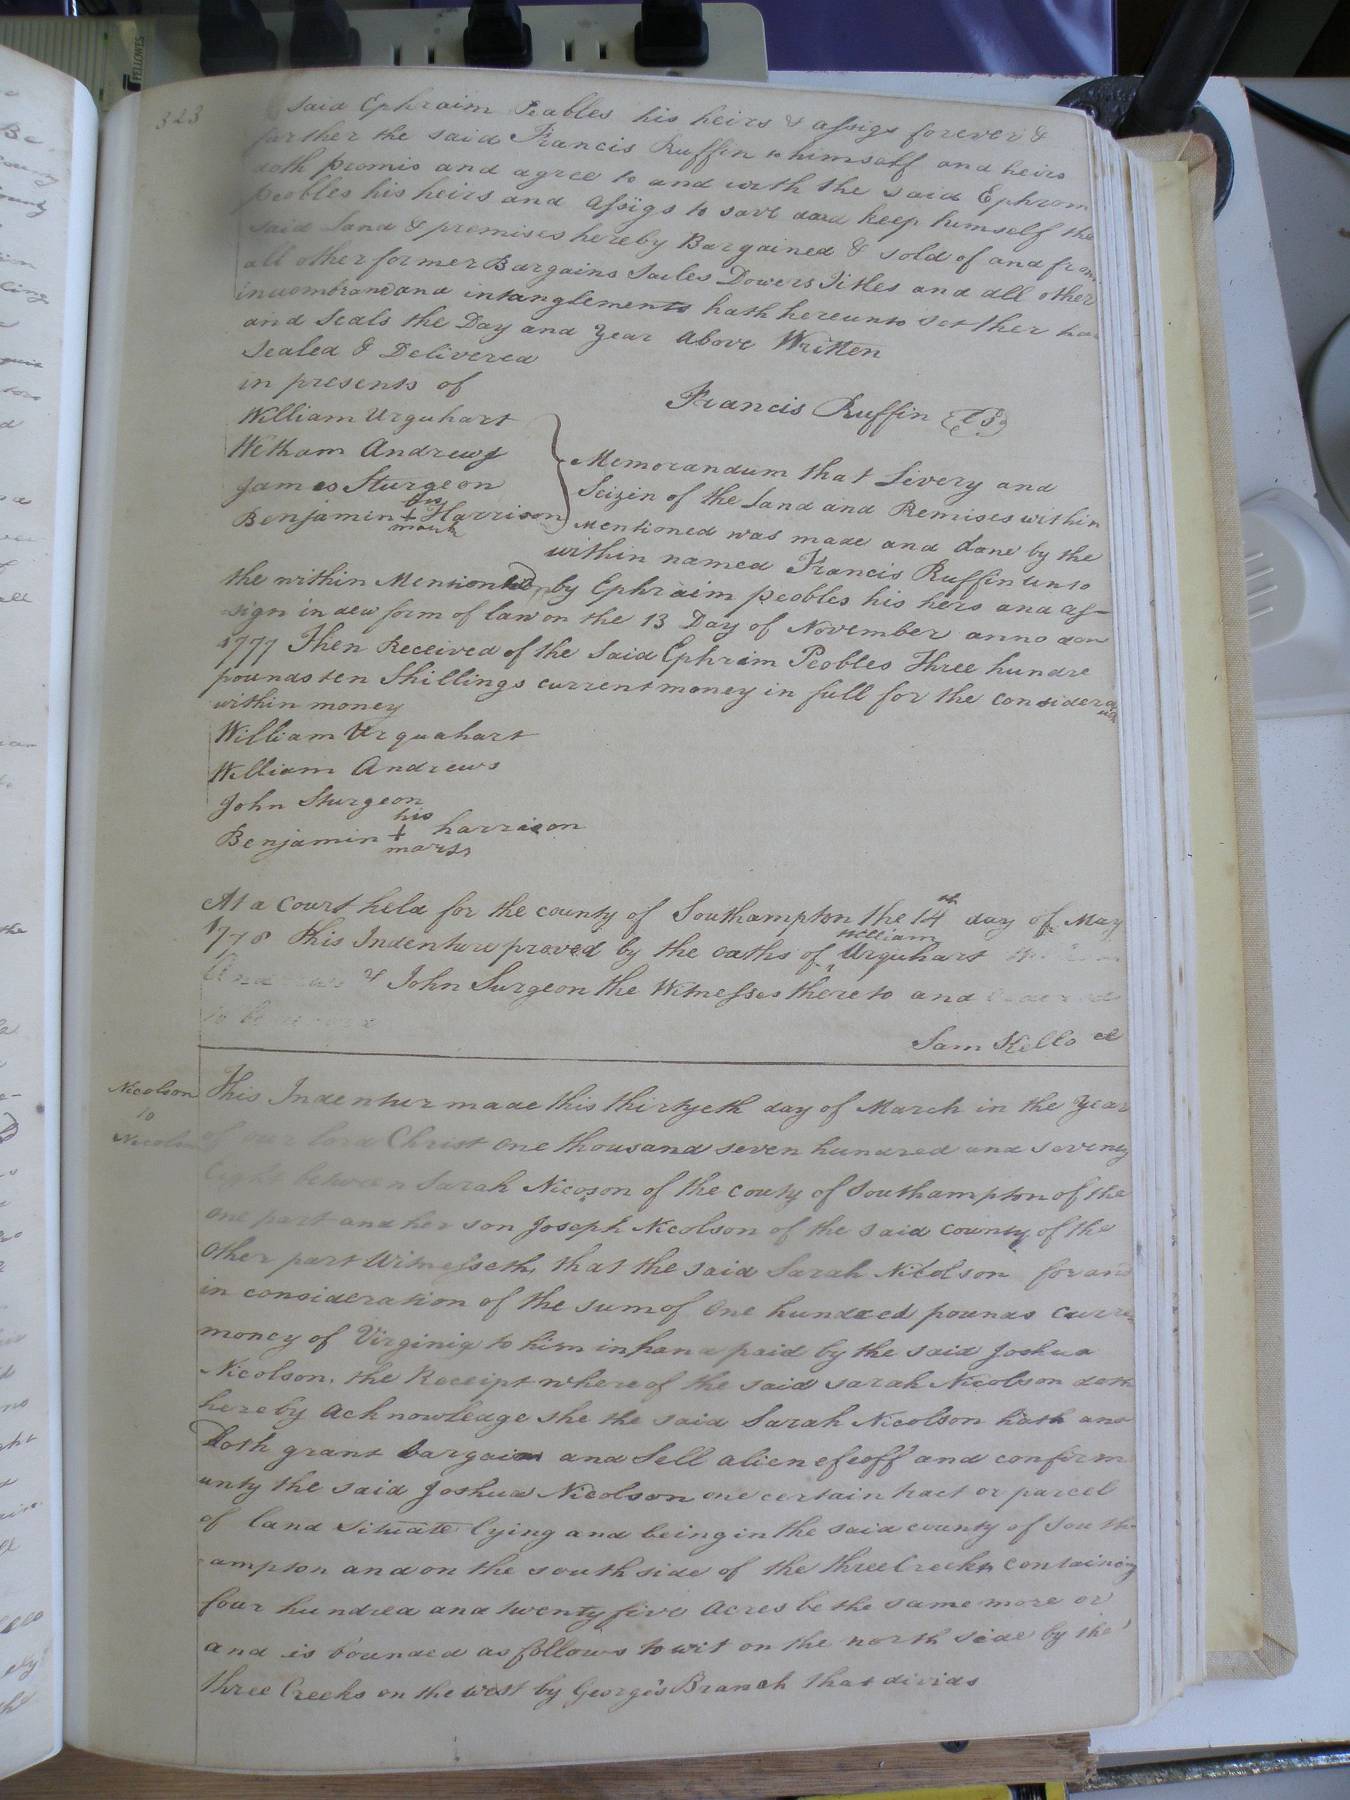 FELLOWES
323
said Ephraim Peables his heirs & assigs forever &
farther the said Francis Ruffin to himself and heirs
doth promis and agree to and with the said Ephrom
peobles his heirs and Assigs to save and keep himself the
said Land & premises hereby Bargained & sold of and from
all other former Bargains Sailes Dowers Titles and all other
incumbrand and intanglements hath hereunto set ther han
and Seals the Day and Year Above Written
Sealed & Delivered
in presents of
Francis Ruffin LS
William Urquhart
William Andrews
James Sturgeon
Benjamin his + mark Harrison
Memorandum that Livery and
Seizin of the Land and Remises within
Mentioned was made and done by the
within named Francis Ruffin unto
the within Mentioned by Ephraim peobles his hers and as-
sign in dew form of law on the 13 Day of November anno dom
1777 Then Received of the Said Ephraim Peobles Three hundre
pounds ten Shillings current money in full for the consideration
within money
William Urquahart
William Andrews
John Sturgeon
Benjamin his + mark harrison
At a Court held for the county of Southampton the 14th day of May
1778 This Indenture proved by the oaths of William Urquhart
Andrews & John Surgeon the Witnesses thereto and ordered
to be
Sam Kello cl
Nicolson
to
Nicolson
This Indentur made this thirtyeth day of March in the Year
of our lord Christ one thousand seven hundred and seventy
Eight between Sarah Nicoson of the couty of Southampton of the
one part and her son Joseph Nicolson of the said county of the
Other part Witnesseth, that the said Sarah Nicolson for and
in consideration of the sum of One hundred pounds curre
money of Virginia to him in hand paid by the said Joshua
Nicolson, the Receipt where of the said sarah Nicolson doth
hereby Acknowledge she the said Sarah Nicolson hath and
Doth grant bargain and Sell alien efeoff and confirm
unty the said Joshua Nicolson one certain tract or parcel
of land Situate lying and being in the said county of South-
ampton and on the south side of the three Creeks containing
four hundred and twenty five Acres be the same more or
and is bounded as follows to wit on the north side by the
three Creeks on the west by Georgis Branch that divids